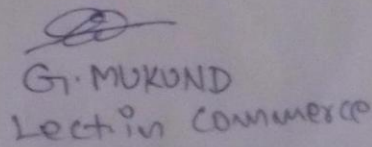 G. MUKUND
Lect. in Commerce